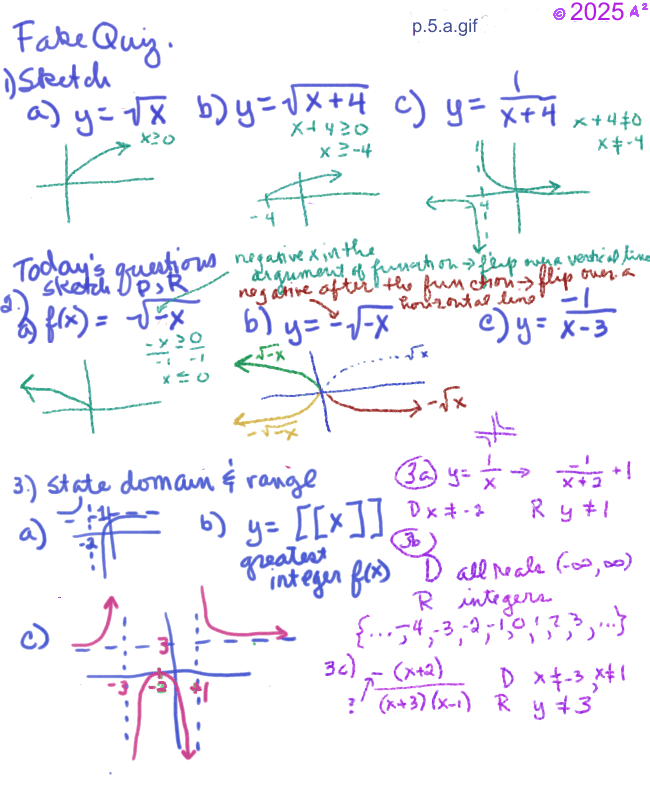 p.5.a.gif
© 2025 A²
Fake Quiz.
1) Sketch
a) y = √x b) y = √x+4 c) y = 1/x+4
x≥0
x+4≥0
x≥-4
x+4≠0
x≠-4
-4
-4
Today's questions
sketch D, R
negative x in the
argument of function → flip over a vertical line
negative after the function → flip over a
horizontal line
2.)
a) f(x) = √-x b) y = -√-x c) y = -1/x-3
-x≥0
-1 -1
x≤0
√-x
√x
-√x
-√-x
3.) State domain & range
a)
1
-2
b) y = [[x]]
greatest
integer f(x)
c)
3
-3 -2 +1
3a) y = 1/x → -1/x+2 +1
D x≠-2 R y≠1
3b
D all reals (-∞,∞)
R integers
{...,-4,-3,-2,-1,0,1,2,3,...}
3c) -(x+2)/(x+3)(x-1)
?
D x≠-3, x≠1
R y≠3